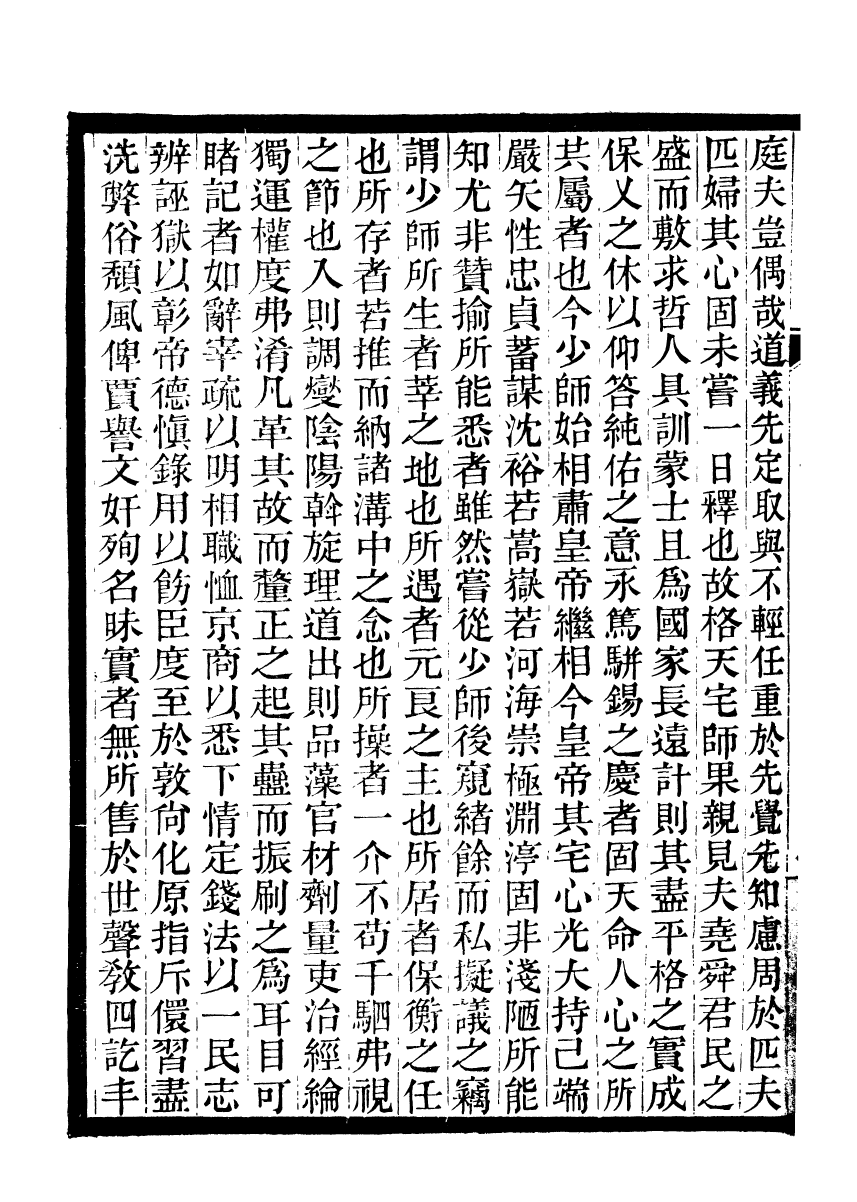 庭夫豈偶哉道義先定取與不輕任重於先覺先知慮周於匹夫
匹婦其心固未嘗一日釋也故格天宅師果親見夫堯舜君民之
盛而敷求哲人具訓蒙士且爲國家長遠計則其盡平格之實成
保乂之休以仰答純佑之意永篤騈錫之慶者固天命人心之所
共屬者也今少師始相肅皇帝繼相今皇帝其宅心光大持己端
嚴矢性忠貞蓄謀沈裕若嵩嶽若河海崇極淵渟固非淺陋所能
知尤非贊揄所能悉者雖然嘗從少師後窺緒餘而私擬議之竊
謂少師所生者莘之地也所遇者元良之主也所居者保衡之任
也所存者若推而納諸溝中之念也所操者一介不苟千駟弗視
之節也入則調燮陰陽斡旋理道出則品藻官材劑量吏治經綸
獨運權度弗淆凡革其故而釐正之起其蠱而振刷之爲耳目可
睹記者如辭宰疏以明相職恤京商以悉下情定錢法以一民志
辨誣獄以彰帝德愼錄用以飭臣度至於敦尙化原指斥儇習盡
洗弊俗頹風俾賈譽文奸殉名昧實者無所售於世聲敎四訖丰